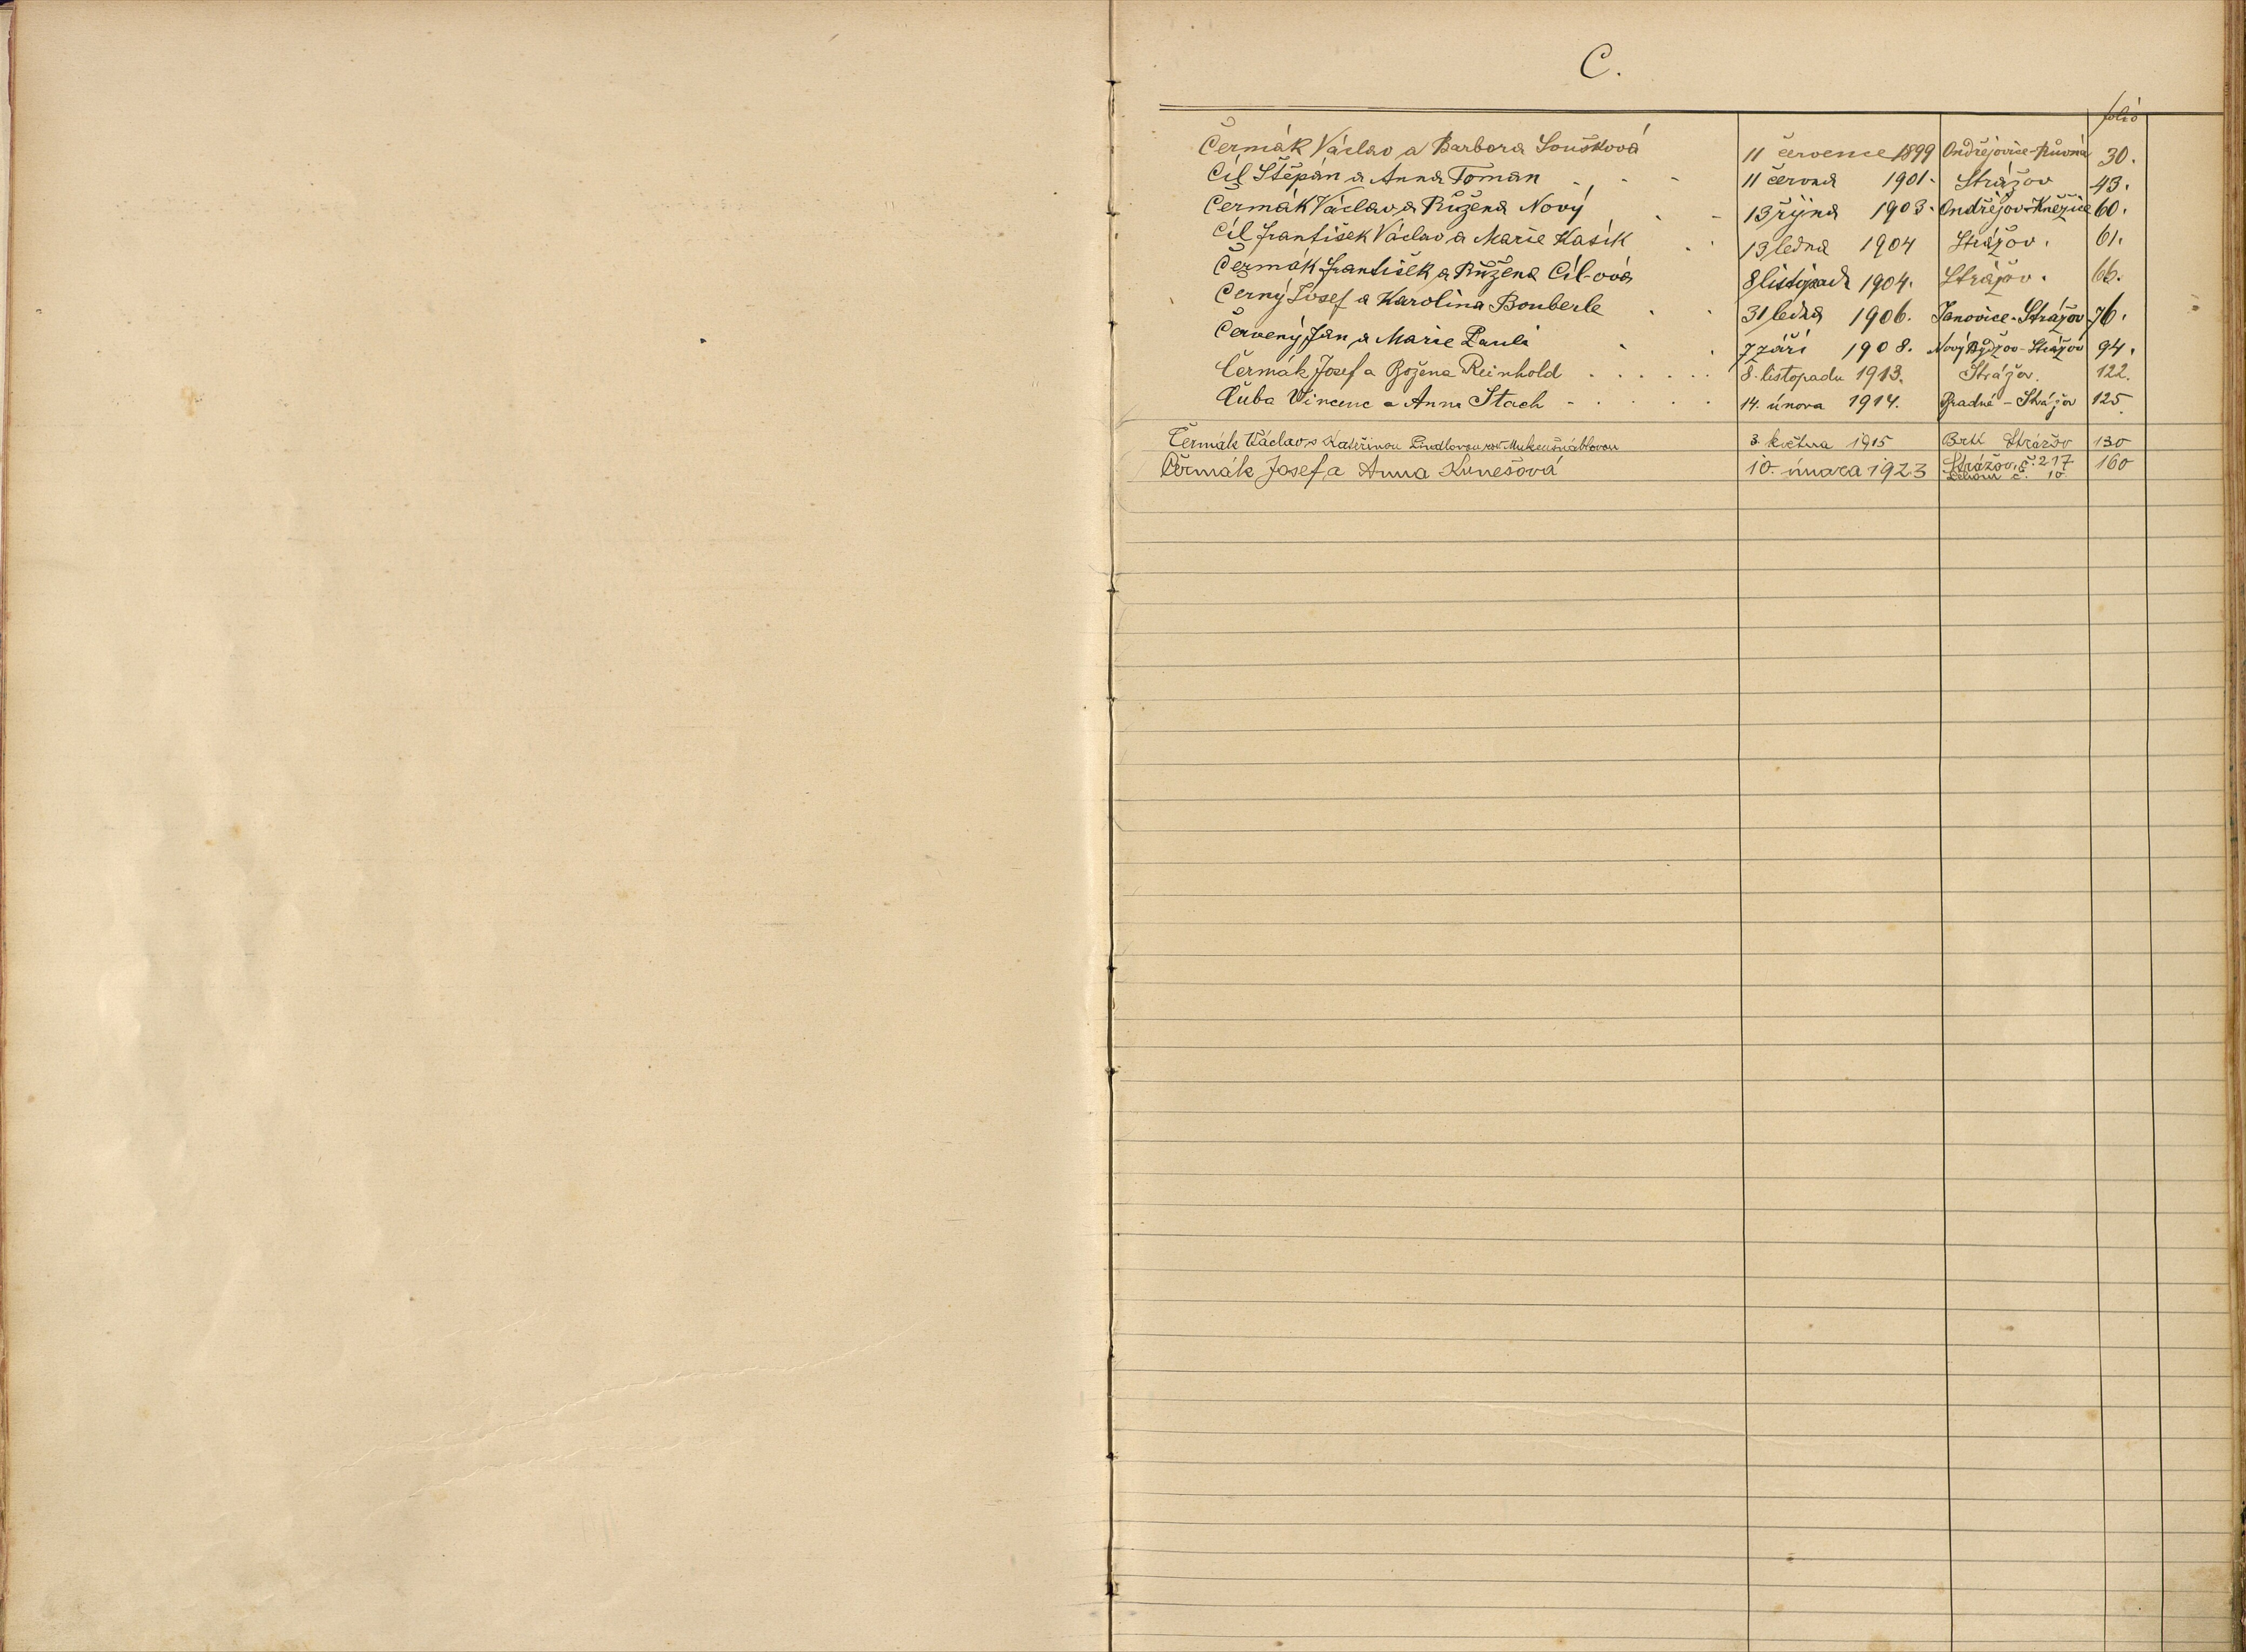 C.
folio
Čermák Václav a Barbora Soušková 11 července 1899 Ondřejovice-Růvná 30.
Cíl Štěpán a Anna Toman 11 června 1901. Strážov 43.
Čermák Václav a Růžena Nový 13 října 1903. Ondřejov-Kněžice 60.
Cíl František Václav a Marie Kasík 13 ledna 1904 Strážov. 61.
Čermák František a Růžena Cíl-ová 8 listopadu 1904. Strážov. 66.
Černý Josef a Karolina Bouberle 31 ledna 1906. Janovice-Strážov 76.
Červený Jan a Marie Pauli 7 září 1908. Nový Bydžov-Strážov 94.
Čermák Josef a Božena Reinhold 8. listopadu 1913. Strážov. 122.
Čuba Vincenc a Anna Stach 14. února 1914. Bradné - Strážov 125.
Čermák Václav s Kateřinou 3. května 1915 Brtí Strážov 130
Čermák Josef a Anna Kunešová 10. února 1923 Strážov, č. 217 160
č. 10.